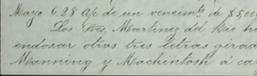 Mayo 6 28 a/c de un vencimto de $5,00
Los Sres. Martinez del Rio tra
endosar otras tres letras girad
Manning y Mackintosh á ca